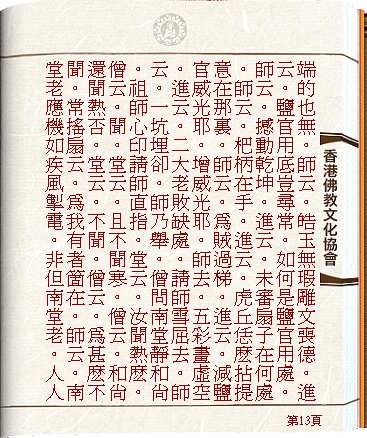 端的也無。師云。皓玉無瑕雕文喪德。進
云。鹽官用底豈尋常。如何是鹽官用處。
師云。撼動乾坤。進云。未審扇子在何處。
師云。杷柄在手。進云。虎丘恁麼拈提
意在那裏。師云。爲賊過梯。進云。減鹽
官威光耶。增威光耶。師去。五彩畫虛空
。進云。二大老敗缺處。請師雪屈去。師
云。一坑埋卻。師乃舉。僧問南堂靜和尚
。祖師心印請師直指。堂云。汝聞熱麼。
僧云。聞。堂云。且不聞寒。僧云。和尚
還聞熱否。堂云。不聞。僧云。爲甚麼不
聞。常搖扇云。爲我有者箇在。師云。南
堂老應機如疾風掣電。非但南堂老。人人
香港佛教文化協會
第13頁